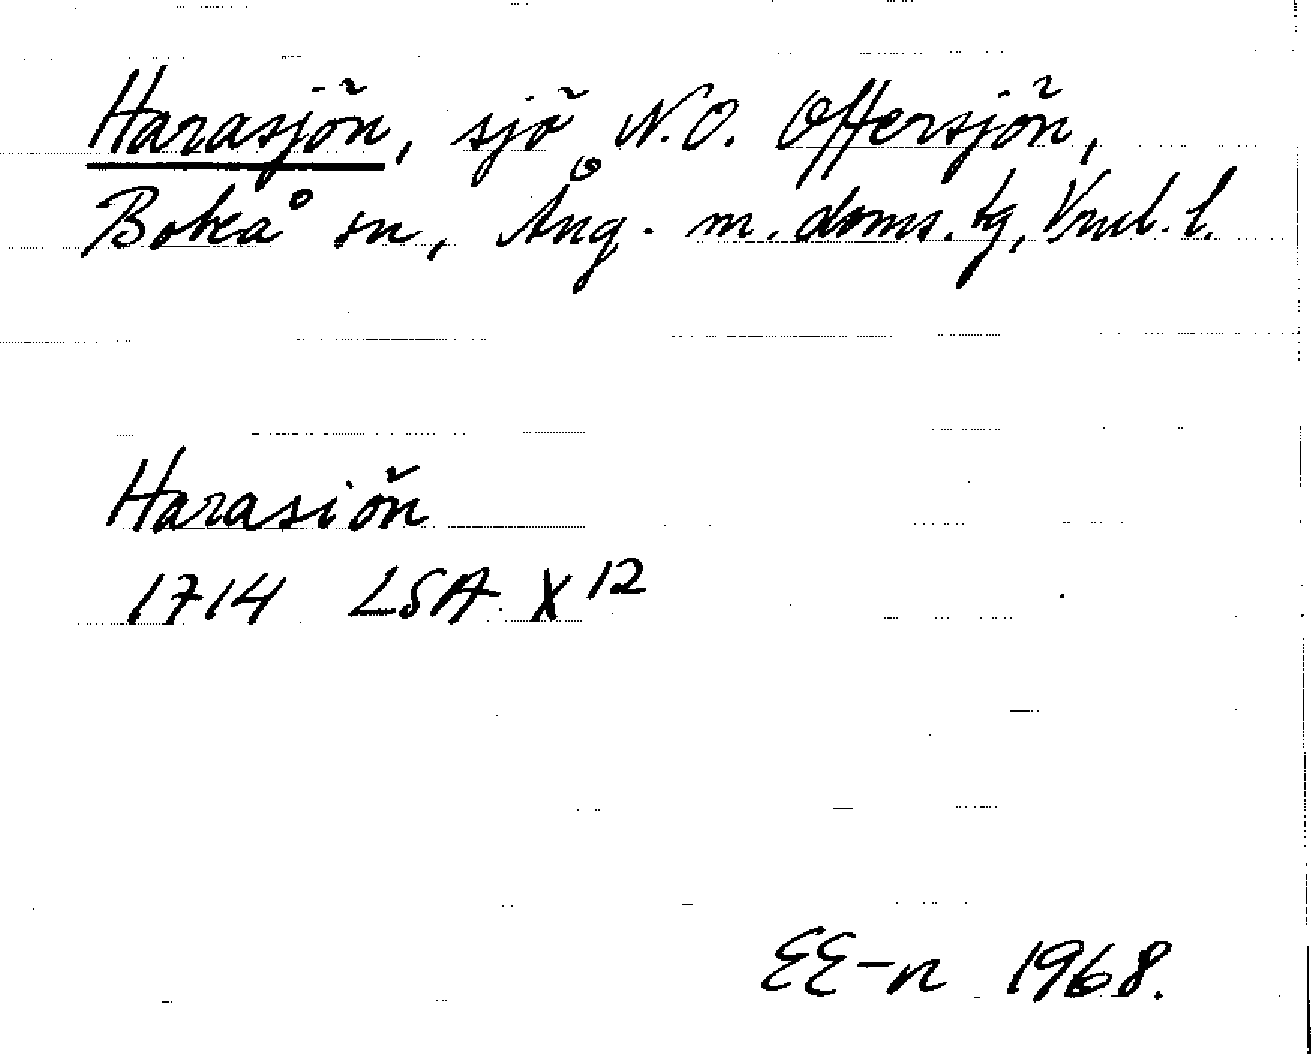 Harasjön, sjö N.O. Offersjön,
Boteå sn, Ång. m. doms. tg, Vnl. l.
Harasiön
1714 LSA X 12
EE-n 1968.